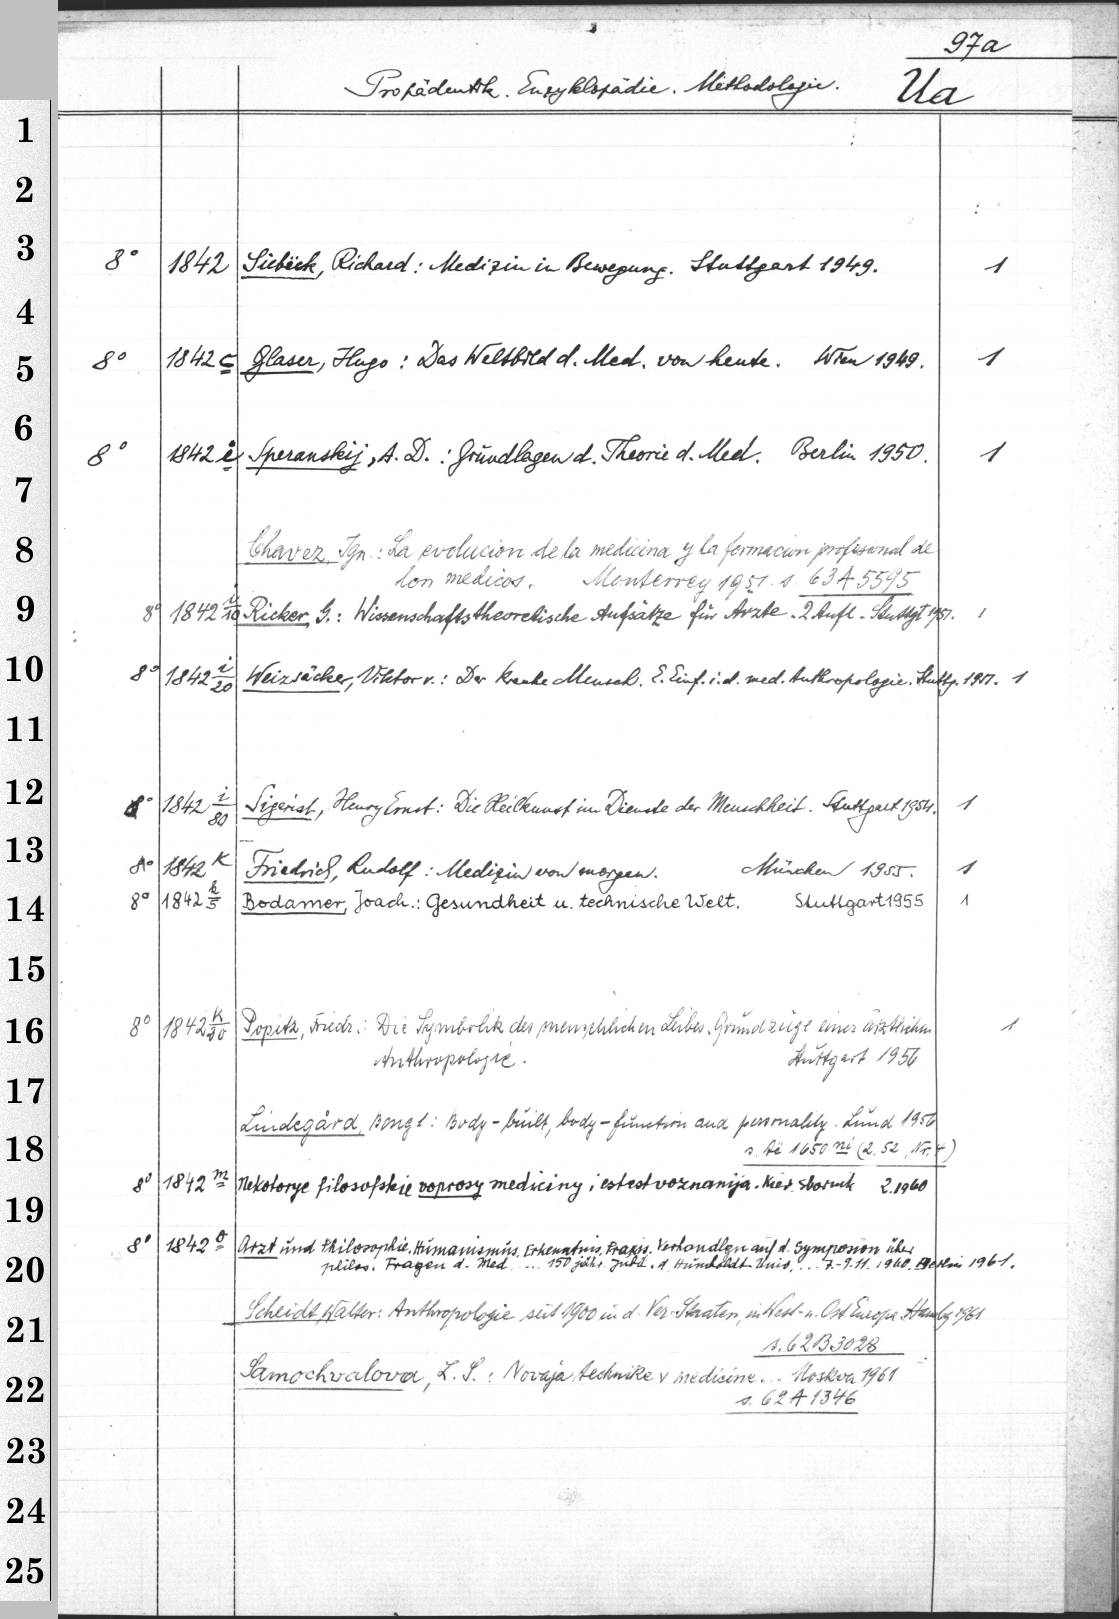 97a
Propädeutik. Enzyklopädie. Methodologie. Ua
1
2
3
8° 1842 Siebeck, Richard: Medizin in Bewegung. Stuttgart 1949. 1
4
5
8° 1842 c Glaser, Hugo: Das Weltbild d. Med. von heute. Wien 1949. 1
6
8° 1842 i Speranskij, A. D.: Grundlagen d. Theorie d. Med. Berlin 1950. 1
7
8
Chavez, Ign.: La evolucion de la medicina y la formacion profesional de
los medicos. Monterrey 1951. s. 63 A 5595
9
8° 1842 i/10 Ricker, G.: Wissenschaftstheoretische Aufsätze für Ärzte. 2. Aufl. Stuttgt 1951. 1
10
8° 1842 i/20 Weizsäcker, Viktor v.: Der kranke Mensch. E. Einf. i. d. med. Anthropologie. Stuttg. 1951. 1
11
12
8° 1842 i/80 Sigerist, Henry Ernst: Die Heilkunst im Dienste der Menschheit. Stuttgart 1954. 1
13
8° 1842 k Friedrich, Rudolf: Medizin von morgen. München 1955. 1
14
8° 1842 k/5 Bodamer, Joach.: Gesundheit u. technische Welt. Stuttgart 1955 1
15
16
8° 1842 k/20 Popitz, Friedr.: Die Symbolik des menschlichen Leibes. Grundzüge einer ärztlichen 1
Anthropologie. Stuttgart 1956
17
Lindegård, Bengt: Body-built, body-function and personality. Lund 1956
18
s. Ae 1650 ni (2. 52, Nr. 4)
8° 1842 m Nekotorye filosofskie voprosy mediciny i estestvoznanija. Kiev. Sbornik 2. 1960
19
8° 1842 o Arzt und Philosophie. Humanismus, Erkenntnis, Praxis. Verhandlgn auf d. Symposion über
20
philos. Fragen d. Med ... 150 jähr. Jubil. d. Humboldt-Univ. ... 7.-9.11.1960. Berlin 1961.
Scheidt, Walter: Anthropologie seit 1900 in d. Ver. Staaten, in West- u. Ost Europa. Hambg 1961
21
s. 62 B 3028
22
Samochvalova, L. S.: Novaja technike v medicine... Moskva 1961
s. 62 A 1346
23
24
25